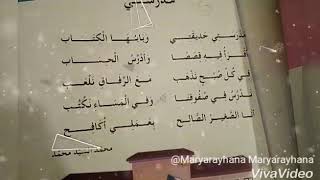 مدرستي
مدرستي حديقتي وبابها الكتاب
أقرأ فيه قصصا وأدرس الحساب
في كل صبح نذهب مع الرفاق نلعب
ندرس في صفوفنا وفي المساء نكتب
أنا الصغير الصالح بعملي أكافح
محمد السيد محمد
@Maryarayhana Maryarayhana
VivaVideo